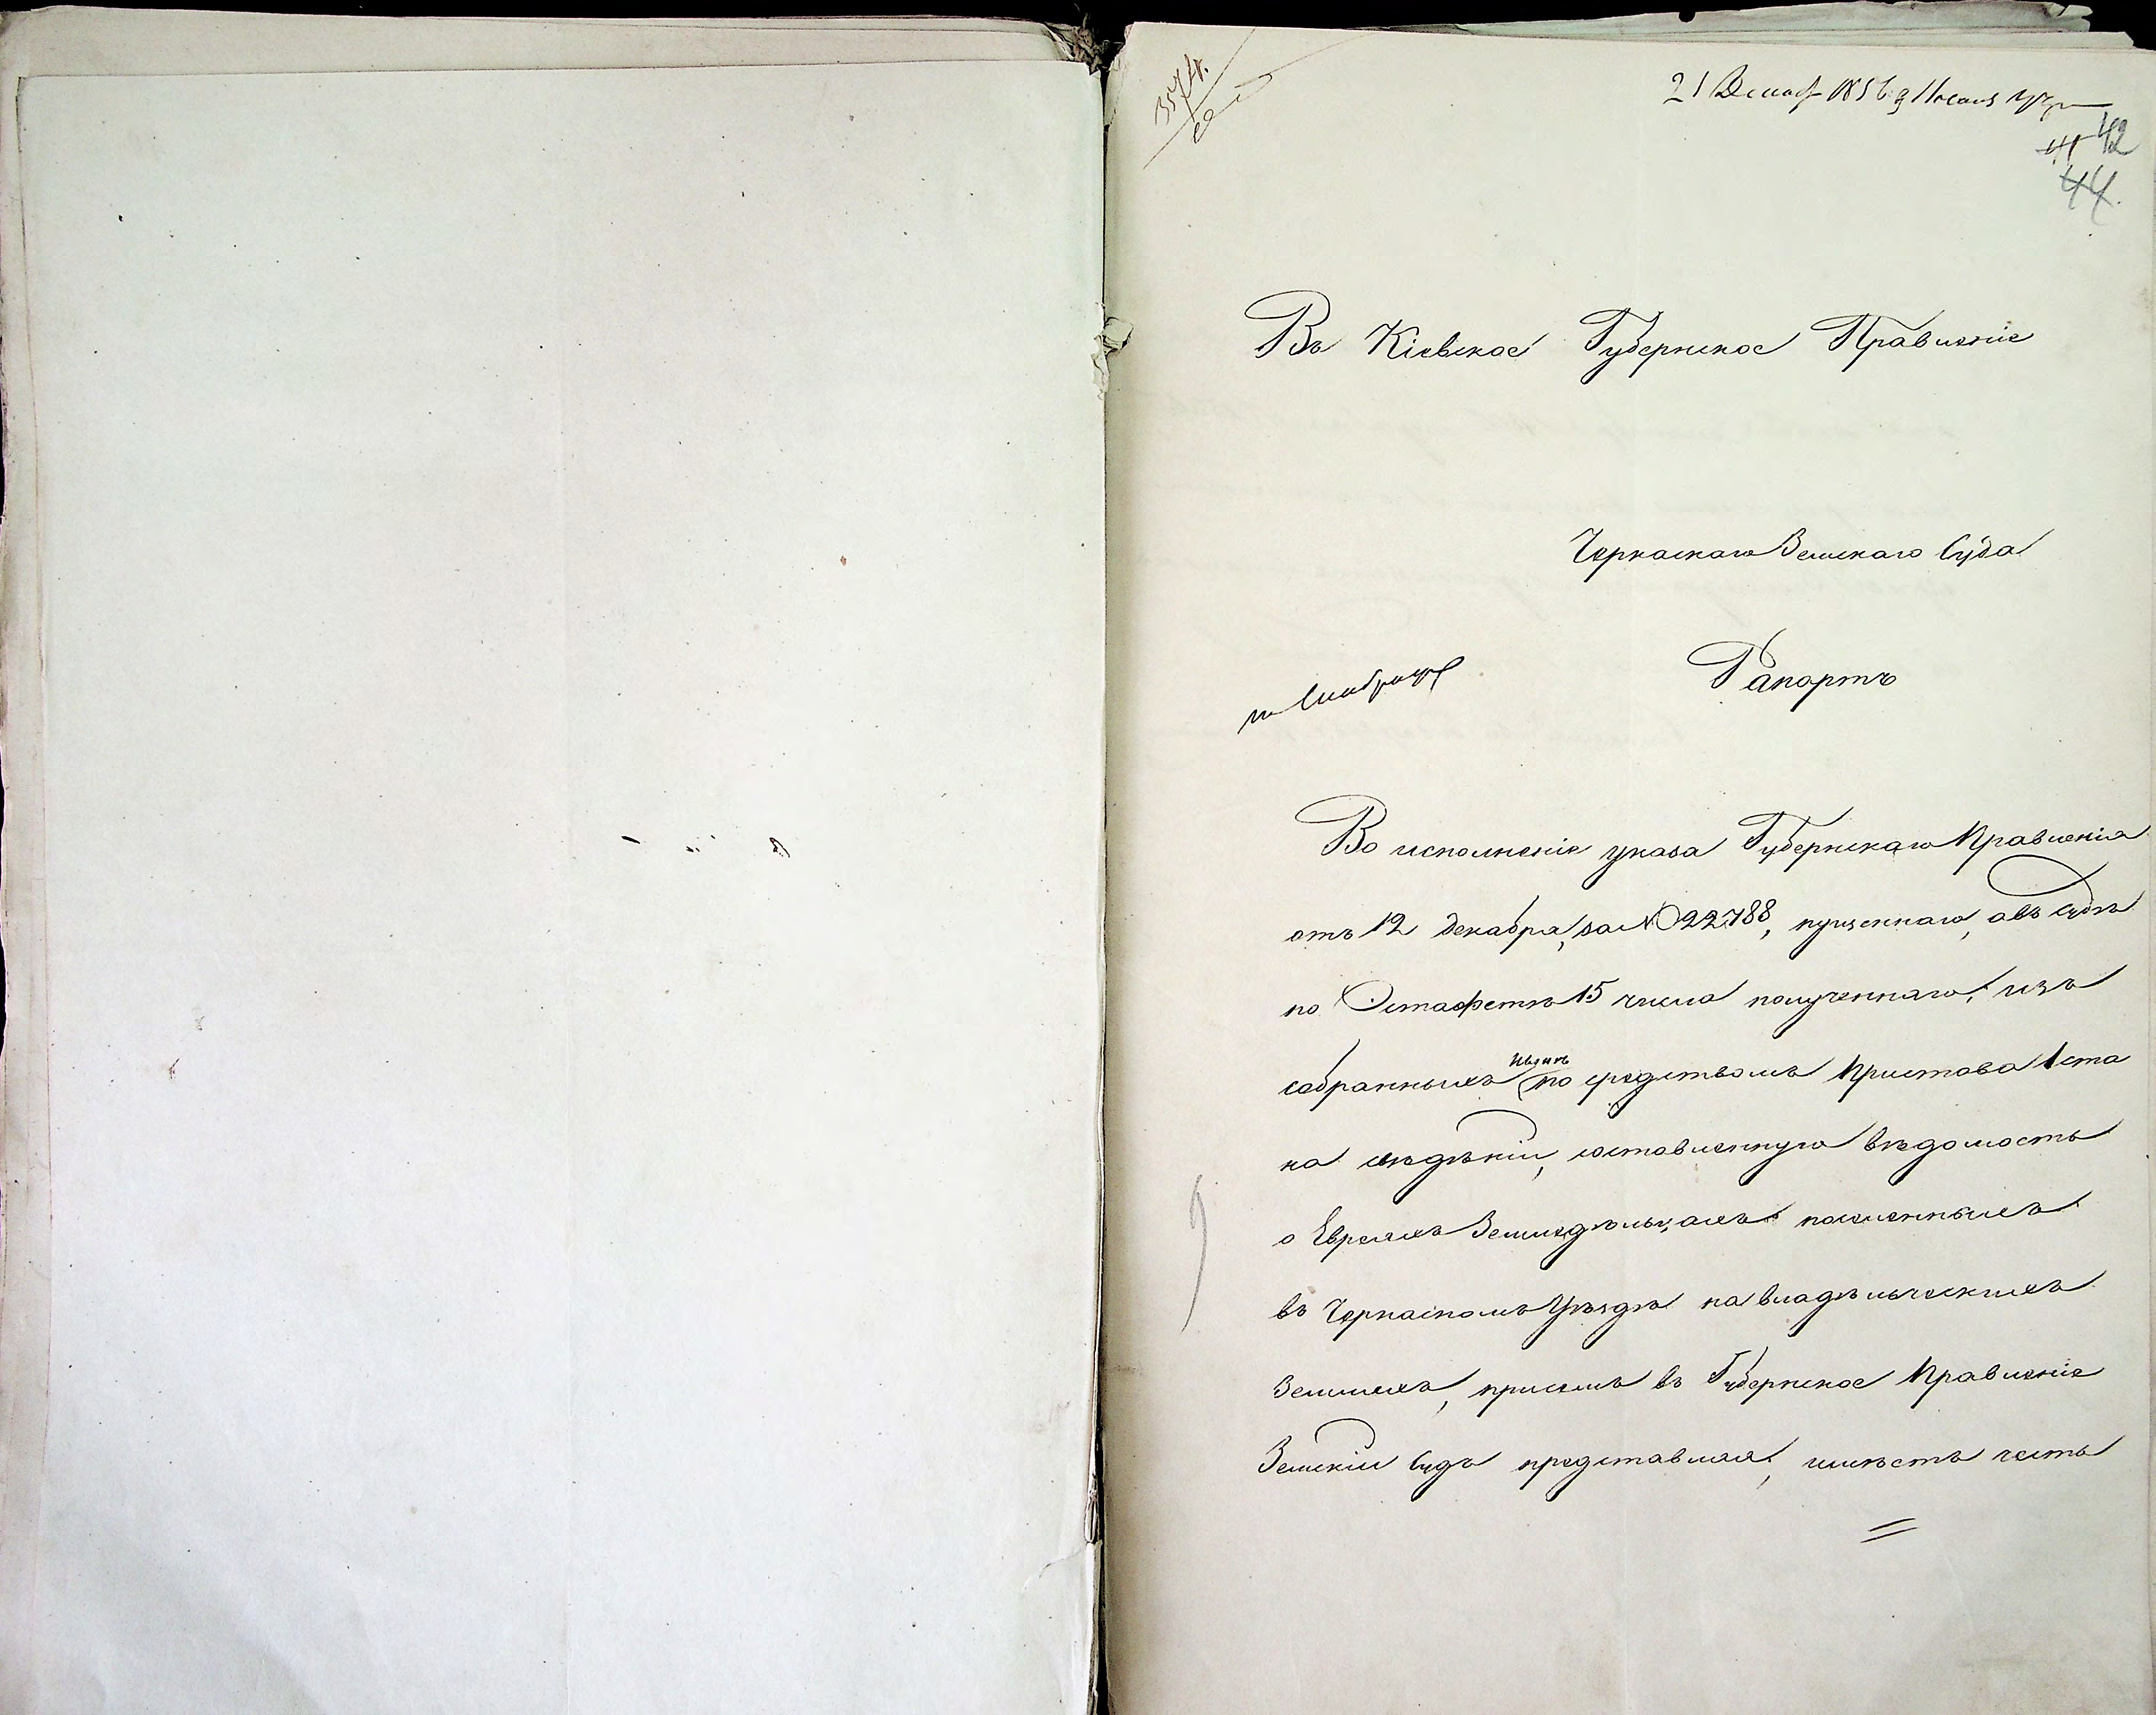 3574.
21 Декабр 1856
42
41
44.
Въ Кіевское Губернское Правленіе
Черкаскаго Земскаго Суда
Рапортъ
Во исполненіе указа Губернскаго Правленія
отъ 12 декабря, за № 22788, пущеннаго, а въ Судѣ
по Эстафетѣ 15 числа полученнаго, изъ
собранныхъ по средствомъ Пристава 1 ста
на свѣдѣній, составленную вѣдомость
о Евреяхъ Земледѣльцахъ поселенныхъ
въ Черкаскомъ Уѣздѣ на владѣльческихъ
земляхъ, присемъ въ Губернское Правленіе
Земскій Судъ представляя, имѣетъ честь
=